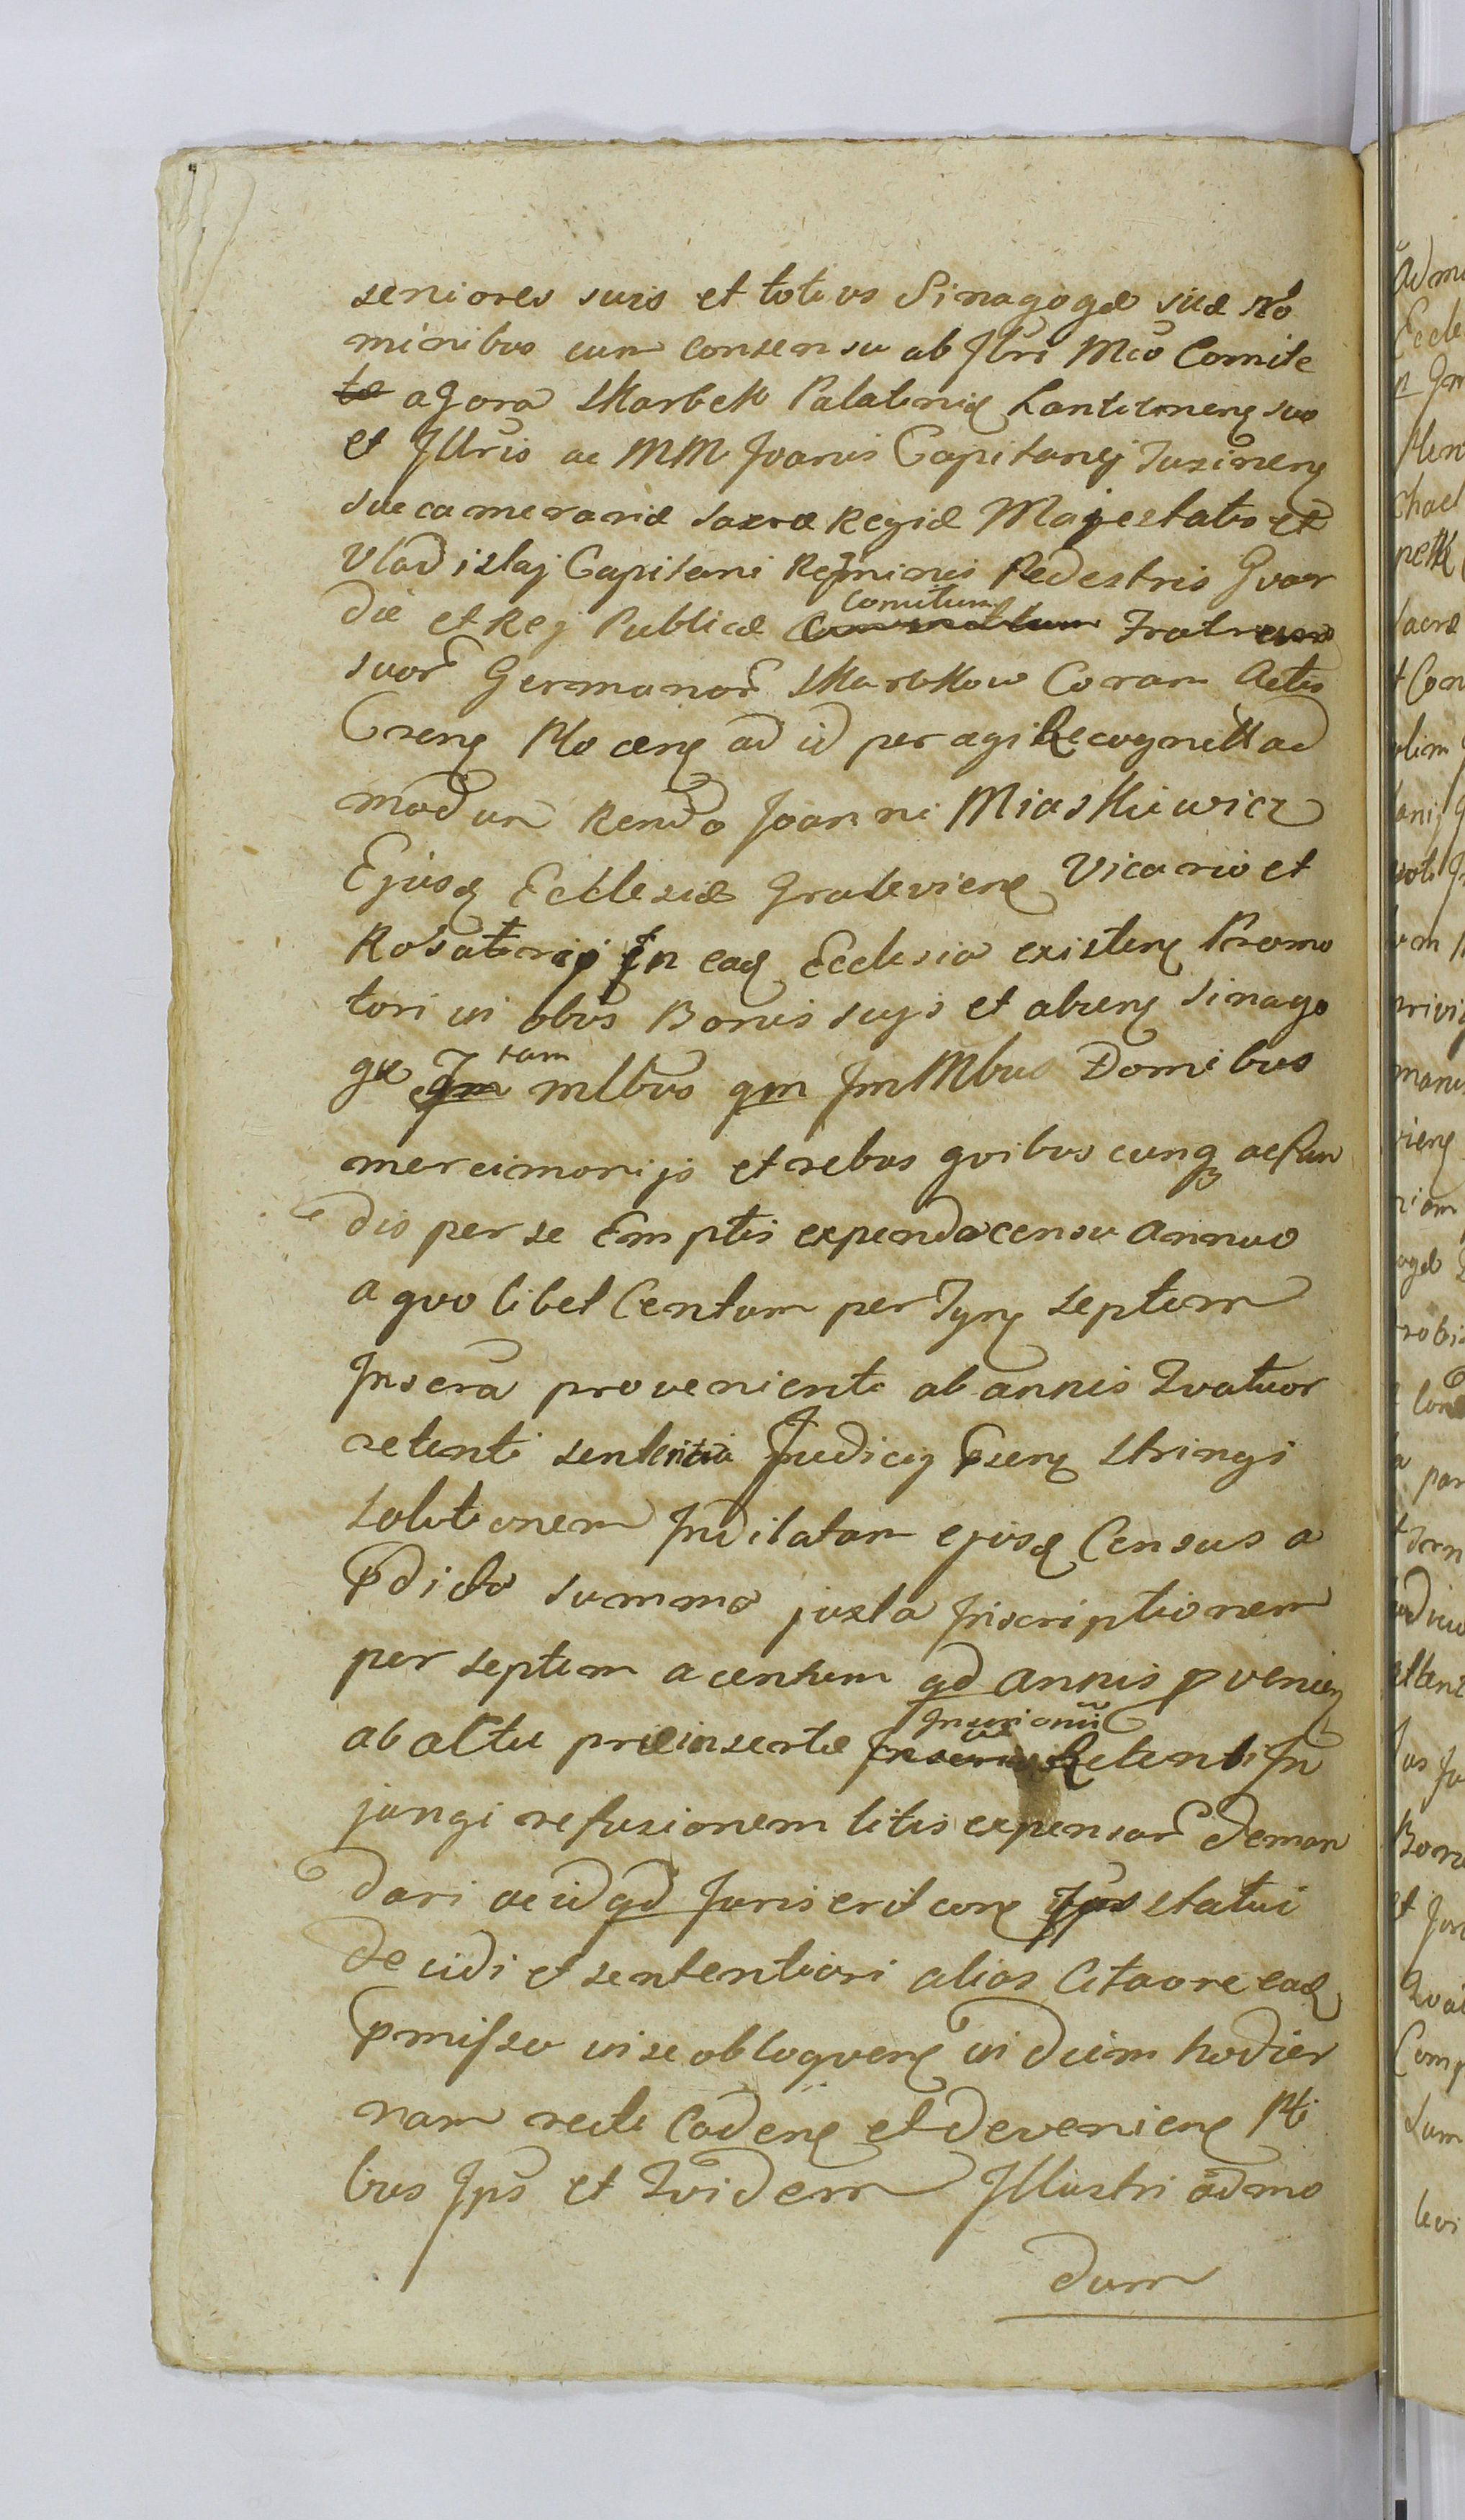 seniores suis et totius Sinagogæ suæ No
minibus cum Consensu ab Illri Mco Comite
te a Gora Skarbek Palatinis
et Illris ac MM Joanis Capitanej
succamerariæ Sacræ Regiæ Majestatis et
Vladislaj Capitani Regminis Pedestris Gvar
diæ et Rej Publicæ Comitum Fratrum
suor Germanor Skarbkow Coram Actis
ad id peragi Recognitt ad
modum Rendo Joanni Miaskiewicz
Ejusd Ecclesiæ Graboviens Vicario et
Rosaterij In ead Ecclesia existens Promo
tori in obus Bonis suijs et Sinago
gæ tam mlbus qm ImMbus Domibus
mercimonijs et rebus qvibus cunq ac fun
dis per se Emptis expenda censu annuo
a quo libet Centum per septem
proveniente ab annis Qvatuor
retenti sententia Judicij pseng stringi
solutionem Indilatam ejusd Census a
pdicta summa juxta Inscriptionem
per septem a centum qd annis pvenien
ab altu præinsertæ Retenti In
jungi refusionem litis expensar deman
dari ac id qd Juris erit statui
decidi et sententiari alias Citaore ead
pmissa in se obloqvens in diem hodier
nam recte Cadens et deveniens Pti
bus Ips et Qvidem Illustri admo
dum